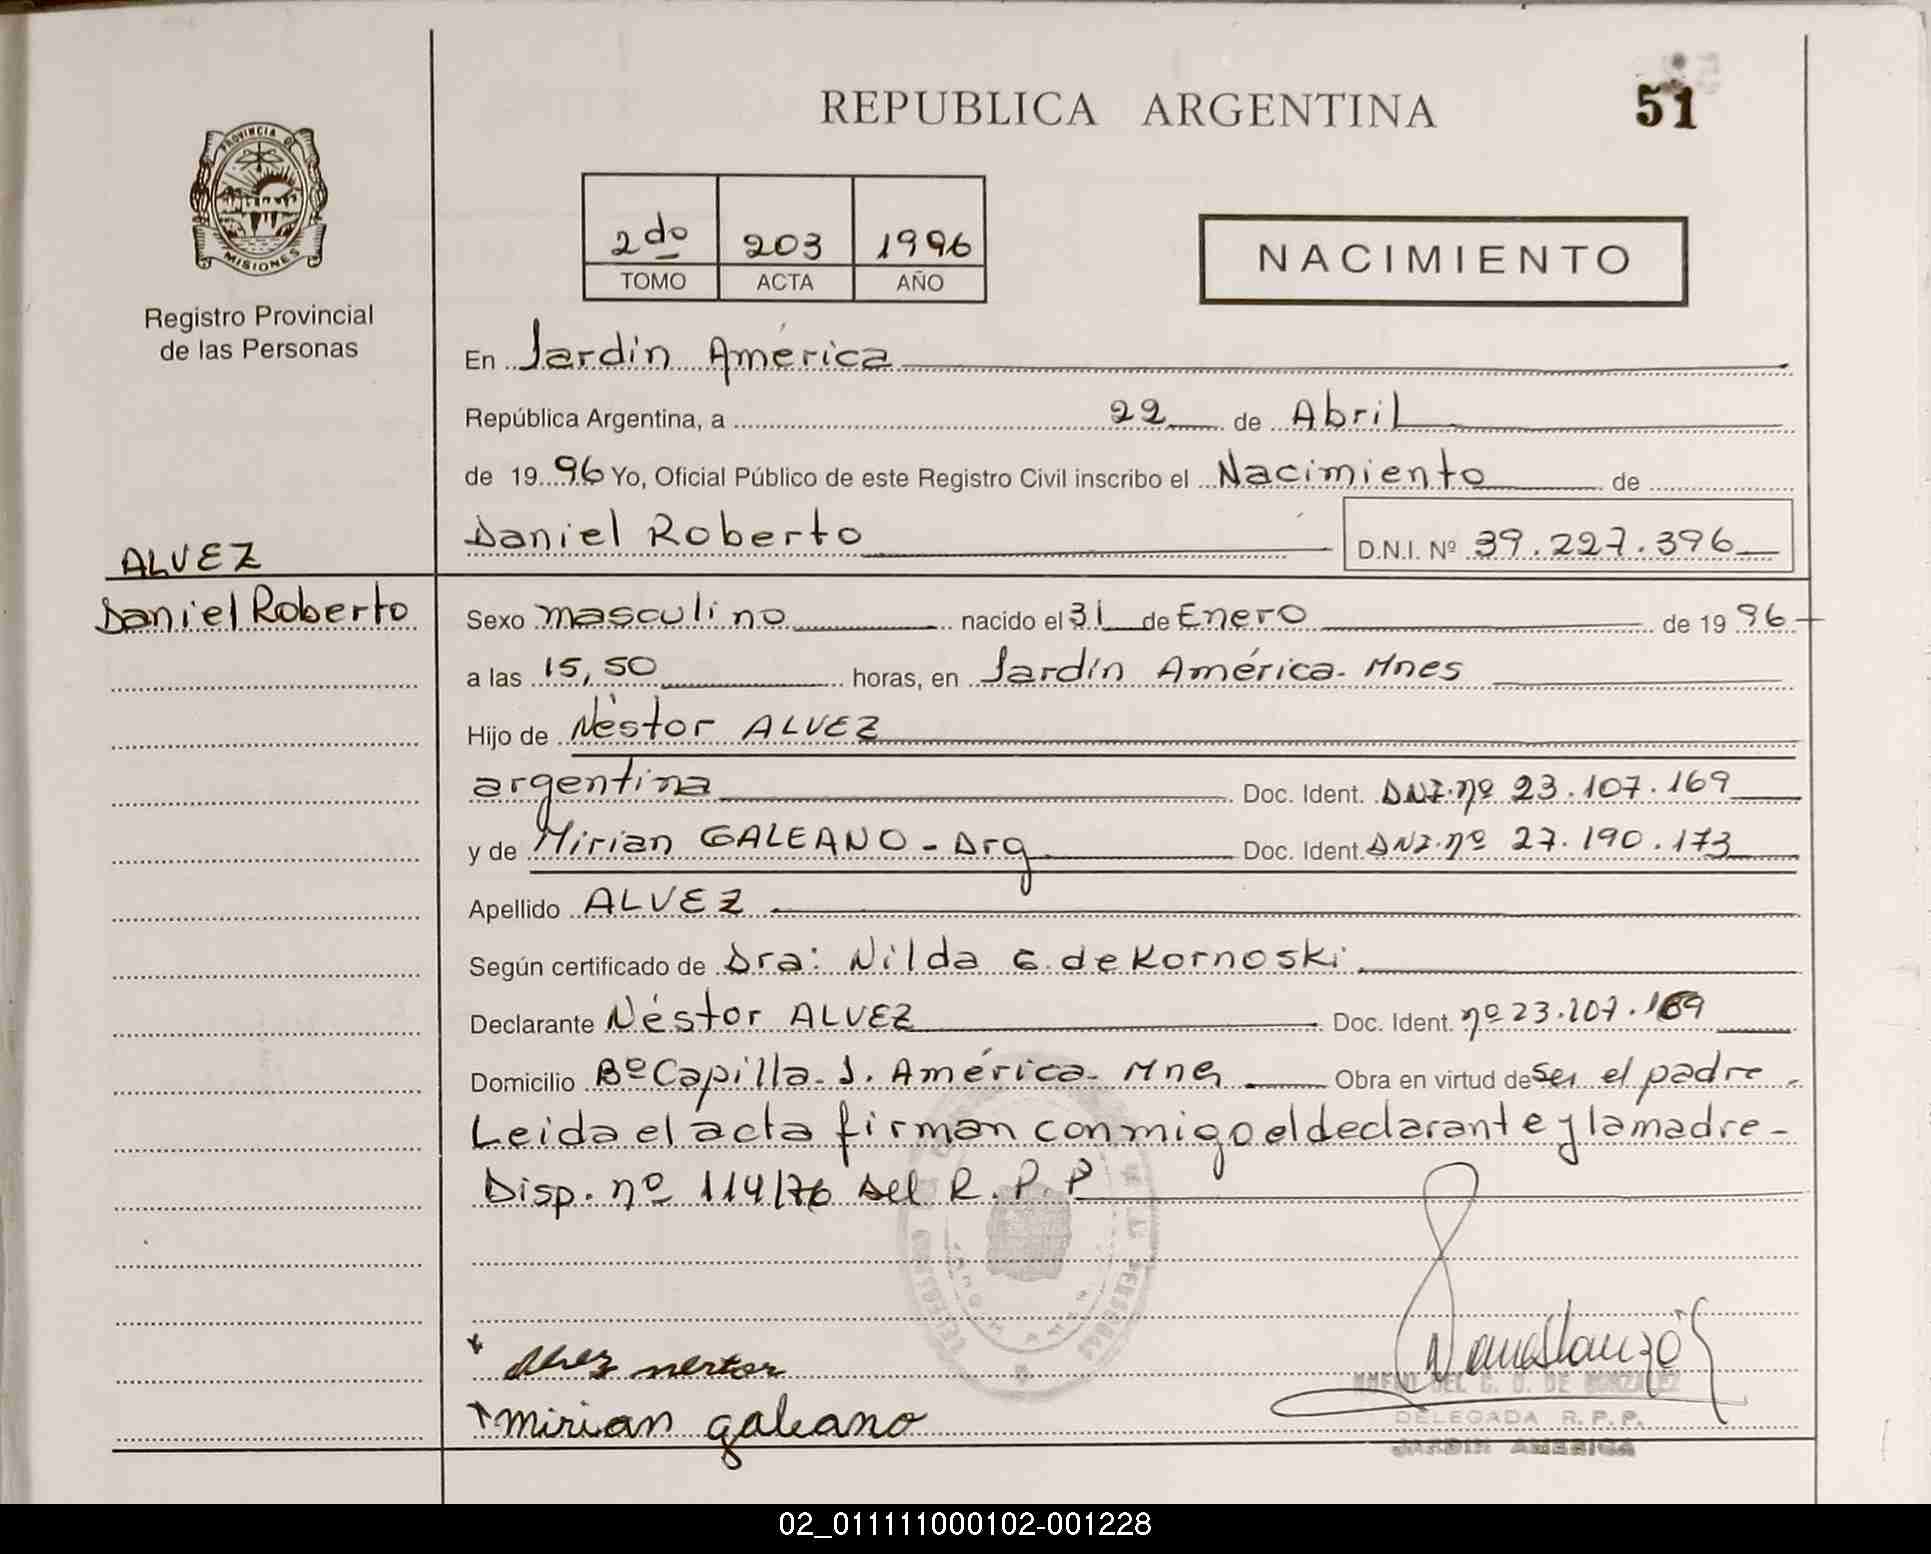 REPUBLICA ARGENTINA
51
PROVINCIA DE
MISIONES
Registro Provincial
de las Personas
2do 203 1996
TOMO ACTA AÑO
NACIMIENTO
En Jardín América
República Argentina, a 22 de Abril
de 1996 Yo, Oficial Público de este Registro Civil inscribo el Nacimiento de
Daniel Roberto D.N.I. Nº 39.227.396
ALVEZ
Daniel Roberto
Sexo masculino nacido el 31 de Enero de 1996
a las 15,50 horas, en Jardín América - Mnes
Hijo de Néstor ALVEZ
argentina Doc. Ident. DNI. nº 23.107.169
y de Mirian GALEANO - Arg Doc. Ident. DNI. nº 27.190.173
Apellido ALVEZ
Según certificado de Dra: Nilda G. de Kornoski
Declarante Néstor ALVEZ Doc. Ident. nº 23.107.169
Domicilio Bº Capilla - J. América - Mnes Obra en virtud de ser el padre.
Leida el acta firman conmigo el declarante y la madre -
Disp. nº 114/76 del R.P.P
Alvez nestor
mirian galeano
DE GONZALEZ
DELEGADA R.P.P.
JARDIN AMERICA
02_011111000102-001228